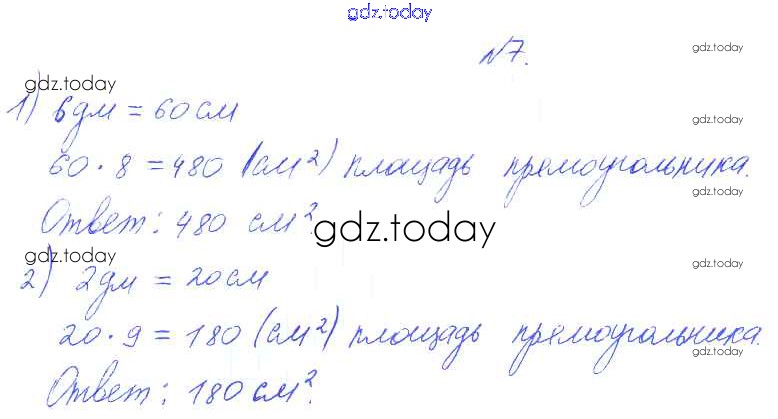 gdz.today
№7.
gdz.today
gdz.today
1) 6дм = 60 см
gdz.today
60 · 8 = 480 (см²) площадь прямоугольника.
gdz.today
Ответ: 480 см².
gdz.today
gdz.today
gdz.today
2) 2дм = 20 см
20 · 9 = 180 (см²) площадь прямоугольника.
gdz.today
Ответ: 180 см².